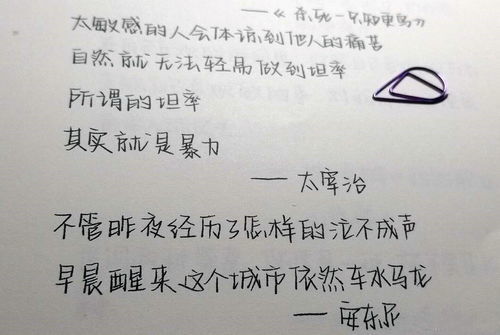 ——《杀死一只知更鸟》
太敏感的人会体谅到他人的痛苦
自然就无法轻易做到坦率
所谓的坦率
其实就是暴力
——太宰治
不管昨夜经历了怎样的泣不成声
早晨醒来这个城市依然车水马龙
——安东尼